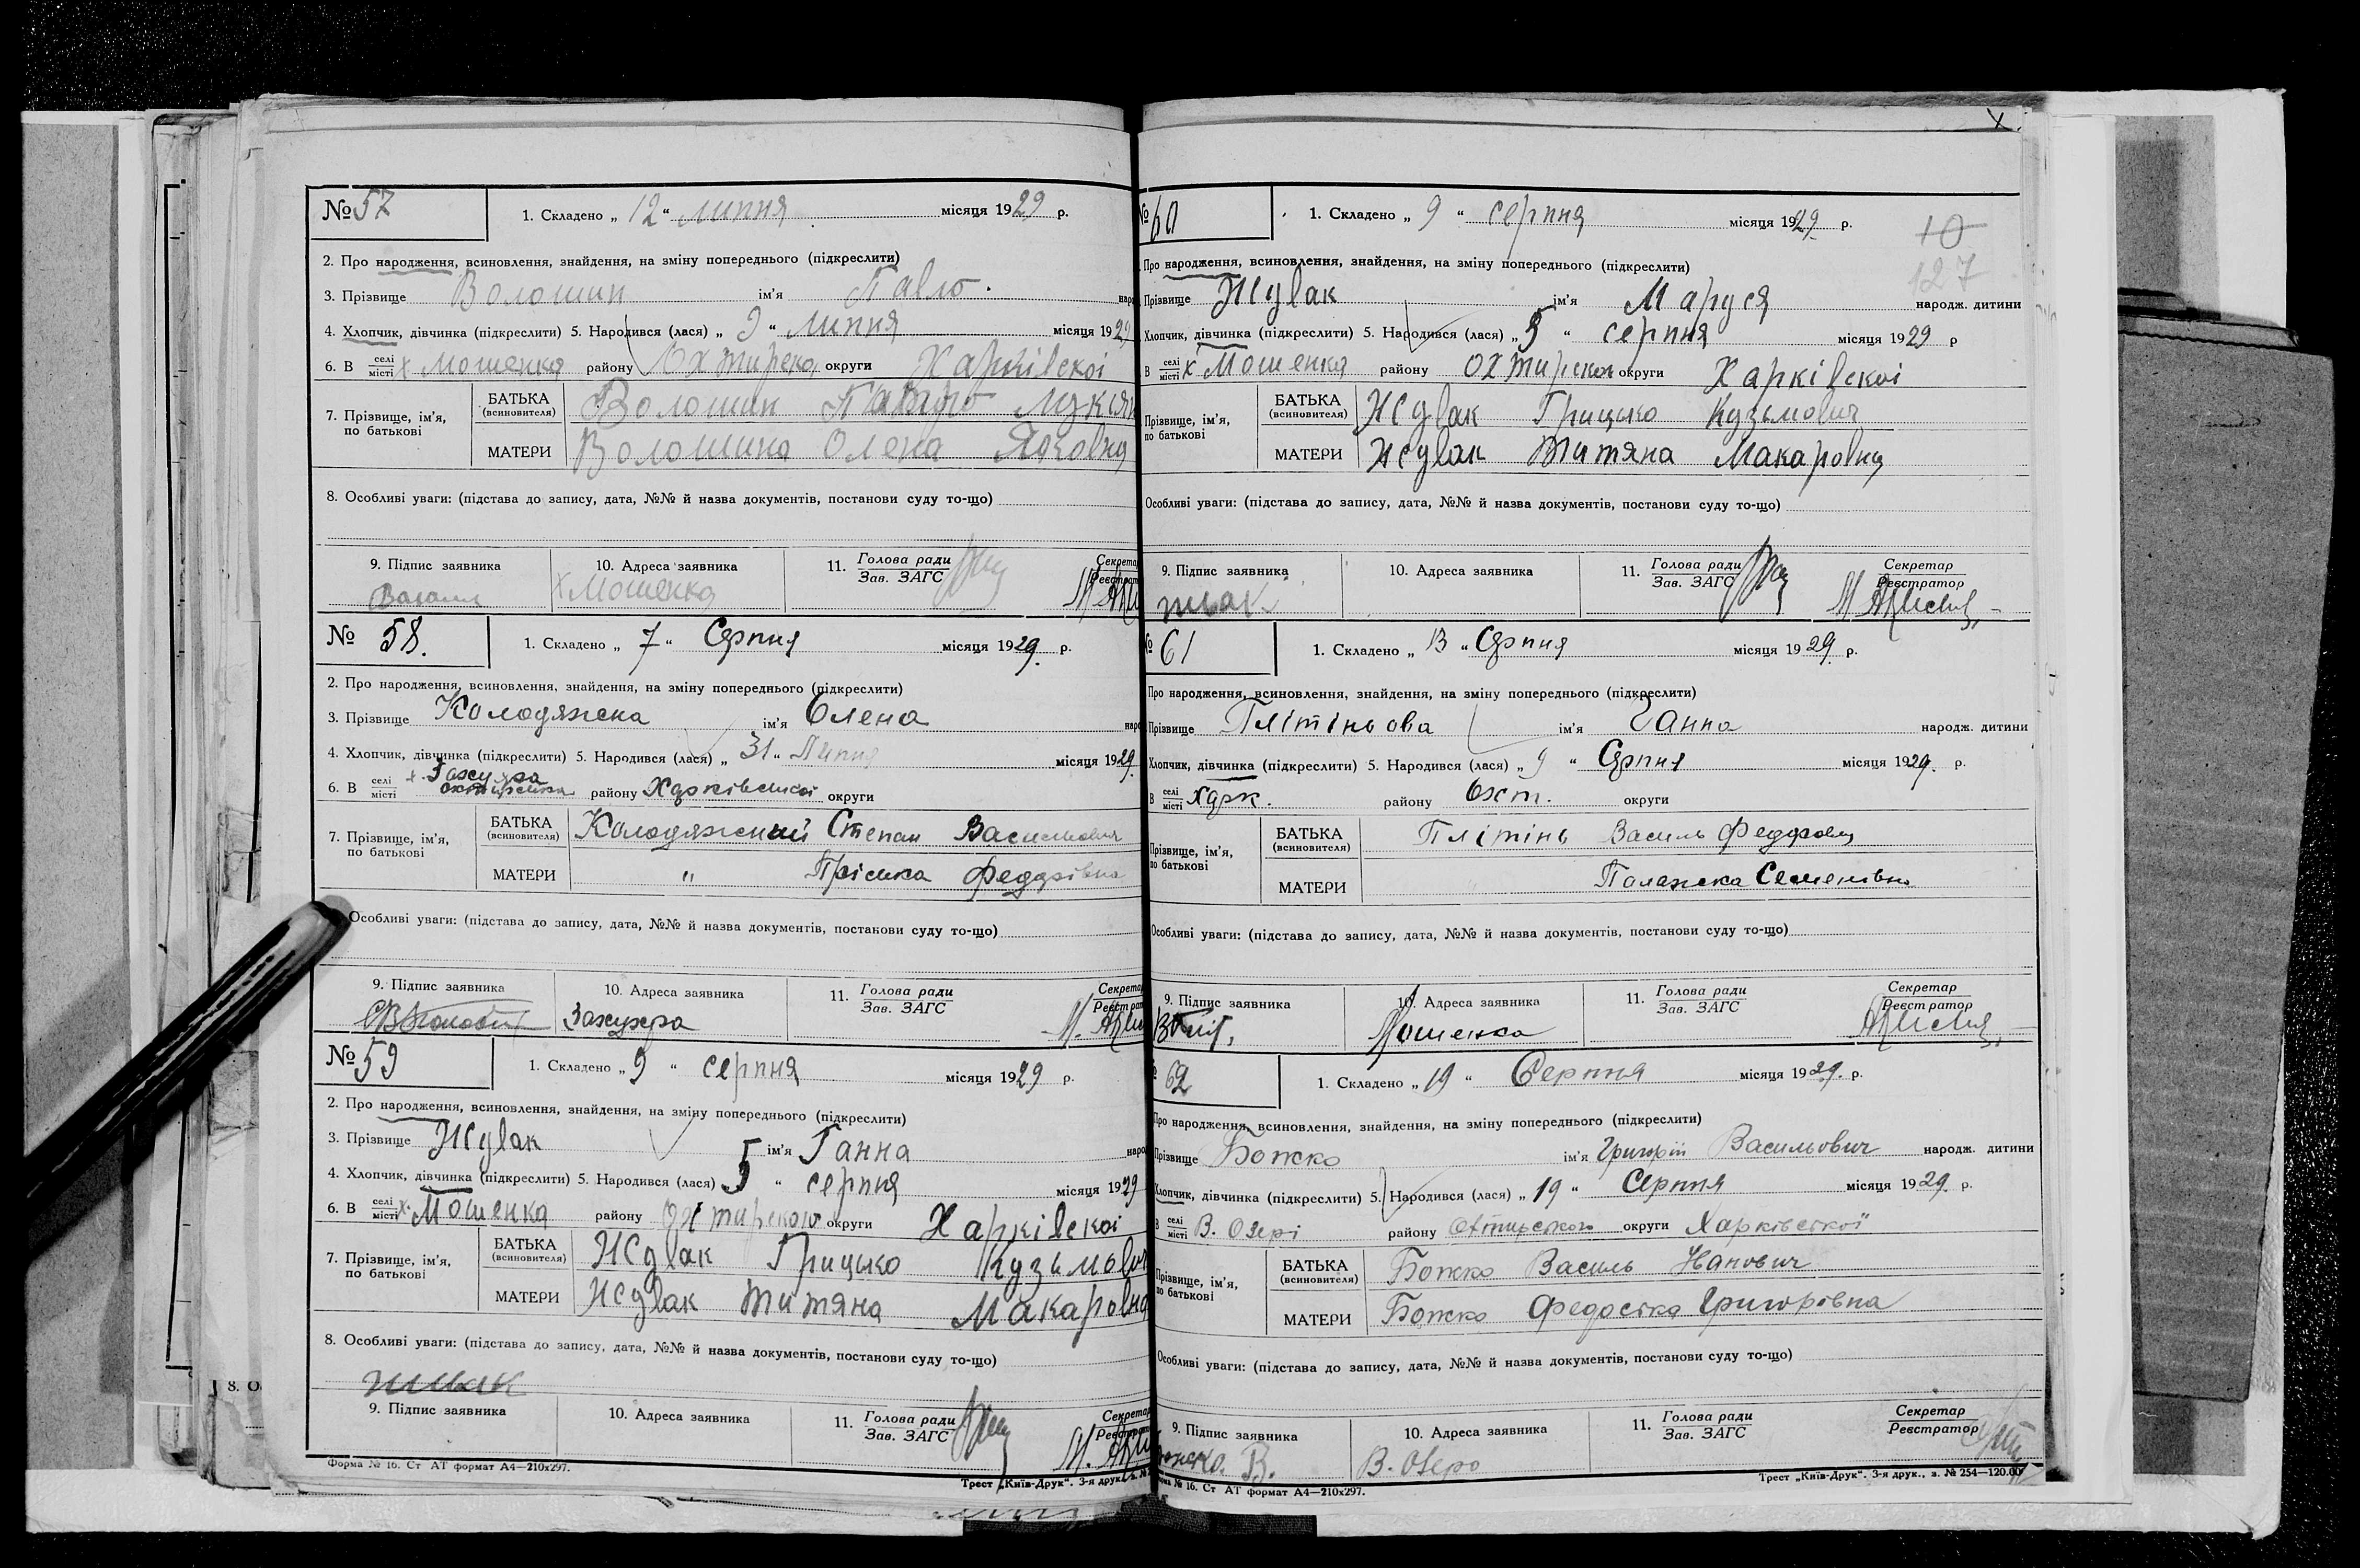 № 57
1. Складено „ 12 “ липня місяця 1929 р.
2. Про народження, всиновлення, знайдення, на зміну попереднього (підкреслити)
3. Прізвище Волошин ім'я Павло. наро
4. Хлопчик, дівчинка (підкреслити) 5. Народився (лася) „ 9 “ липня місяця 1929
6. В селі місті х Мошенка району Охтирско округи Харківскоі
7. Прізвище, ім'я, по батькові
БАТЬКА (всиновителя) Волошин Петро Лукіян
МАТЕРИ Волошина Олена Яковна
8. Особливі уваги: (підстава до запису, дата, №№ й назва документів, постанови суду то-що)
9. Підпис заявника 10. Адреса заявника 11. Голова ради Зав. ЗАГС Секретар
х Мошенка
№ 58.
1. Складено „ 7 “ Серпня місяця 1929. р.
2. Про народження, всиновлення, знайдення, на зміну попереднього (підкреслити)
3. Прізвище Колодяжна ім'я Олена наро
4. Хлопчик, дівчинка (підкреслити) 5. Народився (лася) „ 31 “ Липня місяця 1929.
6. В селі місті району Харківської округи
7. Прізвище, ім'я, по батькові
БАТЬКА (всиновителя) Колодяжний Степан Васильович
МАТЕРИ " Пріська Федорівна
Особливі уваги: (підстава до запису, дата, №№ й назва документів, постанови суду то-що)
9. Підпис заявника 10. Адреса заявника 11. Голова ради Зав. ЗАГС Секретар
№ 59
1. Складено „ 9 “ серпня місяця 1929 р.
2. Про народження, всиновлення, знайдення, на зміну попереднього (підкреслити)
3. Прізвище Жувак ім'я Ганна наро
4. Хлопчик, дівчинка (підкреслити) 5. Народився (лася) 5 “ серпня місяця 1929
6. В селі місті х. Мошенка району Охтирского округи Харківскоі
7. Прізвище, ім'я, по батькові
БАТЬКА (всиновителя) Жувак Грицько Кузьмович
МАТЕРИ Жувак Титяна Макаровна
8. Особливі уваги: (підстава до запису, дата, №№ й назва документів, постанови суду то-що)
9. Підпис заявника 10. Адреса заявника 11. Голова ради Зав. ЗАГС Секретар
Форма № 16. Ст АТ формат А4—210х297.
Трест „Київ-Друк“. 3-я друк., з. №
№ 60
1. Складено „ 9 “ серпня місяця 1929. р.
10
127
Про народження, всиновлення, знайдення, на зміну попереднього (підкреслити)
Прізвище Жувак ім'я Маруся народж. дитини
Хлопчик, дівчинка (підкреслити) 5. Народився (лася) „ 5 “ серпня місяця 1929 р
В селі місті х Мошенка району Охтирског округи Харківскоі
Прізвище, ім'я, по батькові
БАТЬКА (всиновителя) Жувак Грицько Кузьмович
МАТЕРИ Жувак Титяна Макаровна
Особливі уваги: (підстава до запису, дата, №№ й назва документів, постанови суду то-що)
9. Підпис заявника 10. Адреса заявника 11. Голова ради Зав. ЗАГС Секретар Реєстратор
№ 61
1. Складено „ 13 “ Серпня місяця 1929. р.
Про народження, всиновлення, знайдення, на зміну попереднього (підкреслити)
Прізвище Плітіньова ім'я Ганна народж. дитини
Хлопчик, дівчинка (підкреслити) 5. Народився (лася) „ 9 “ Серпня місяця 1929. р.
В селі місті Харк. району Охт. округи
Прізвище, ім'я, по батькові
БАТЬКА (всиновителя) Плітінь Василь Федорович
МАТЕРИ Палажка Семенівна
Особливі уваги: (підстава до запису, дата, №№ й назва документів, постанови суду то-що)
9. Підпис заявника 10. Адреса заявника 11. Голова ради Зав. ЗАГС Секретар Реєстратор
Мошенка
62
1. Складено „ 19 “ Серпня місяця 1929. р.
Про народження, всиновлення, знайдення, на зміну попереднього (підкреслити)
Прізвище Божко ім'я Григорій Васильович народж. дитини
Хлопчик, дівчинка (підкреслити) 5. Народився (лася) „ 19 “ Серпня місяця 1929. р.
В селі місті В. Озері району Охтирського округи Харківської
Прізвище, ім'я, по батькові
БАТЬКА (всиновителя) Божко Василь Іванович
МАТЕРИ Божко Федоська Григорівна
Особливі уваги: (підстава до запису, дата, №№ й назва документів, постанови суду то-що)
9. Підпис заявника 10. Адреса заявника 11. Голова ради Зав. ЗАГС Секретар Реєстратор
Божко. В. В. Озеро
№ 16. Ст АТ формат А4—210х297.
Трест „Київ-Друк“. 3-я друк., з. № 254—120.00